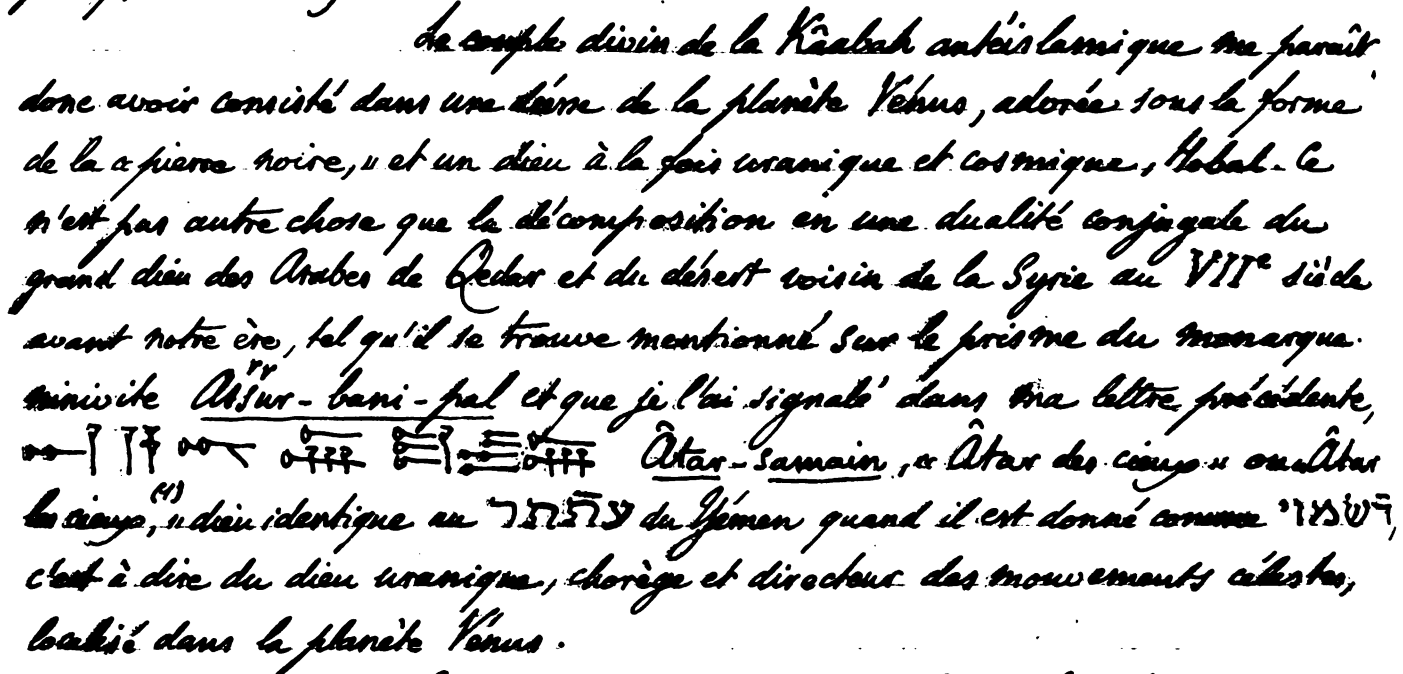 Le couple divin de la Kâabah antéislamique me paraît
donc avoir consisté dans une déesse de la planète Vénus, adorée sous la forme
de la « pierre noire, » et un dieu à la fois uranique et cosmique, Hobal. Ce
n'est pas autre chose que la décomposition en une dualité conjugale du
grand dieu des Arabes de Qedar et du désert voisin de la Syrie au VIIe siècle
avant notre ère, tel qu'il se trouve mentionné sur le prisme du monarque
ninivite Assur-bani-pal et que je l'ai signalé dans ma lettre précédente,
Âtar-samain, « Âtar des cieux » ou « Âtar
les cieux, (1) » dieu identique au עת̄תר du Yémen quand il est donné comme ד̄שמוי,
c'est à dire du dieu uranique, chorège et directeur des mouvements célestes,
localisé dans la planète Vénus.